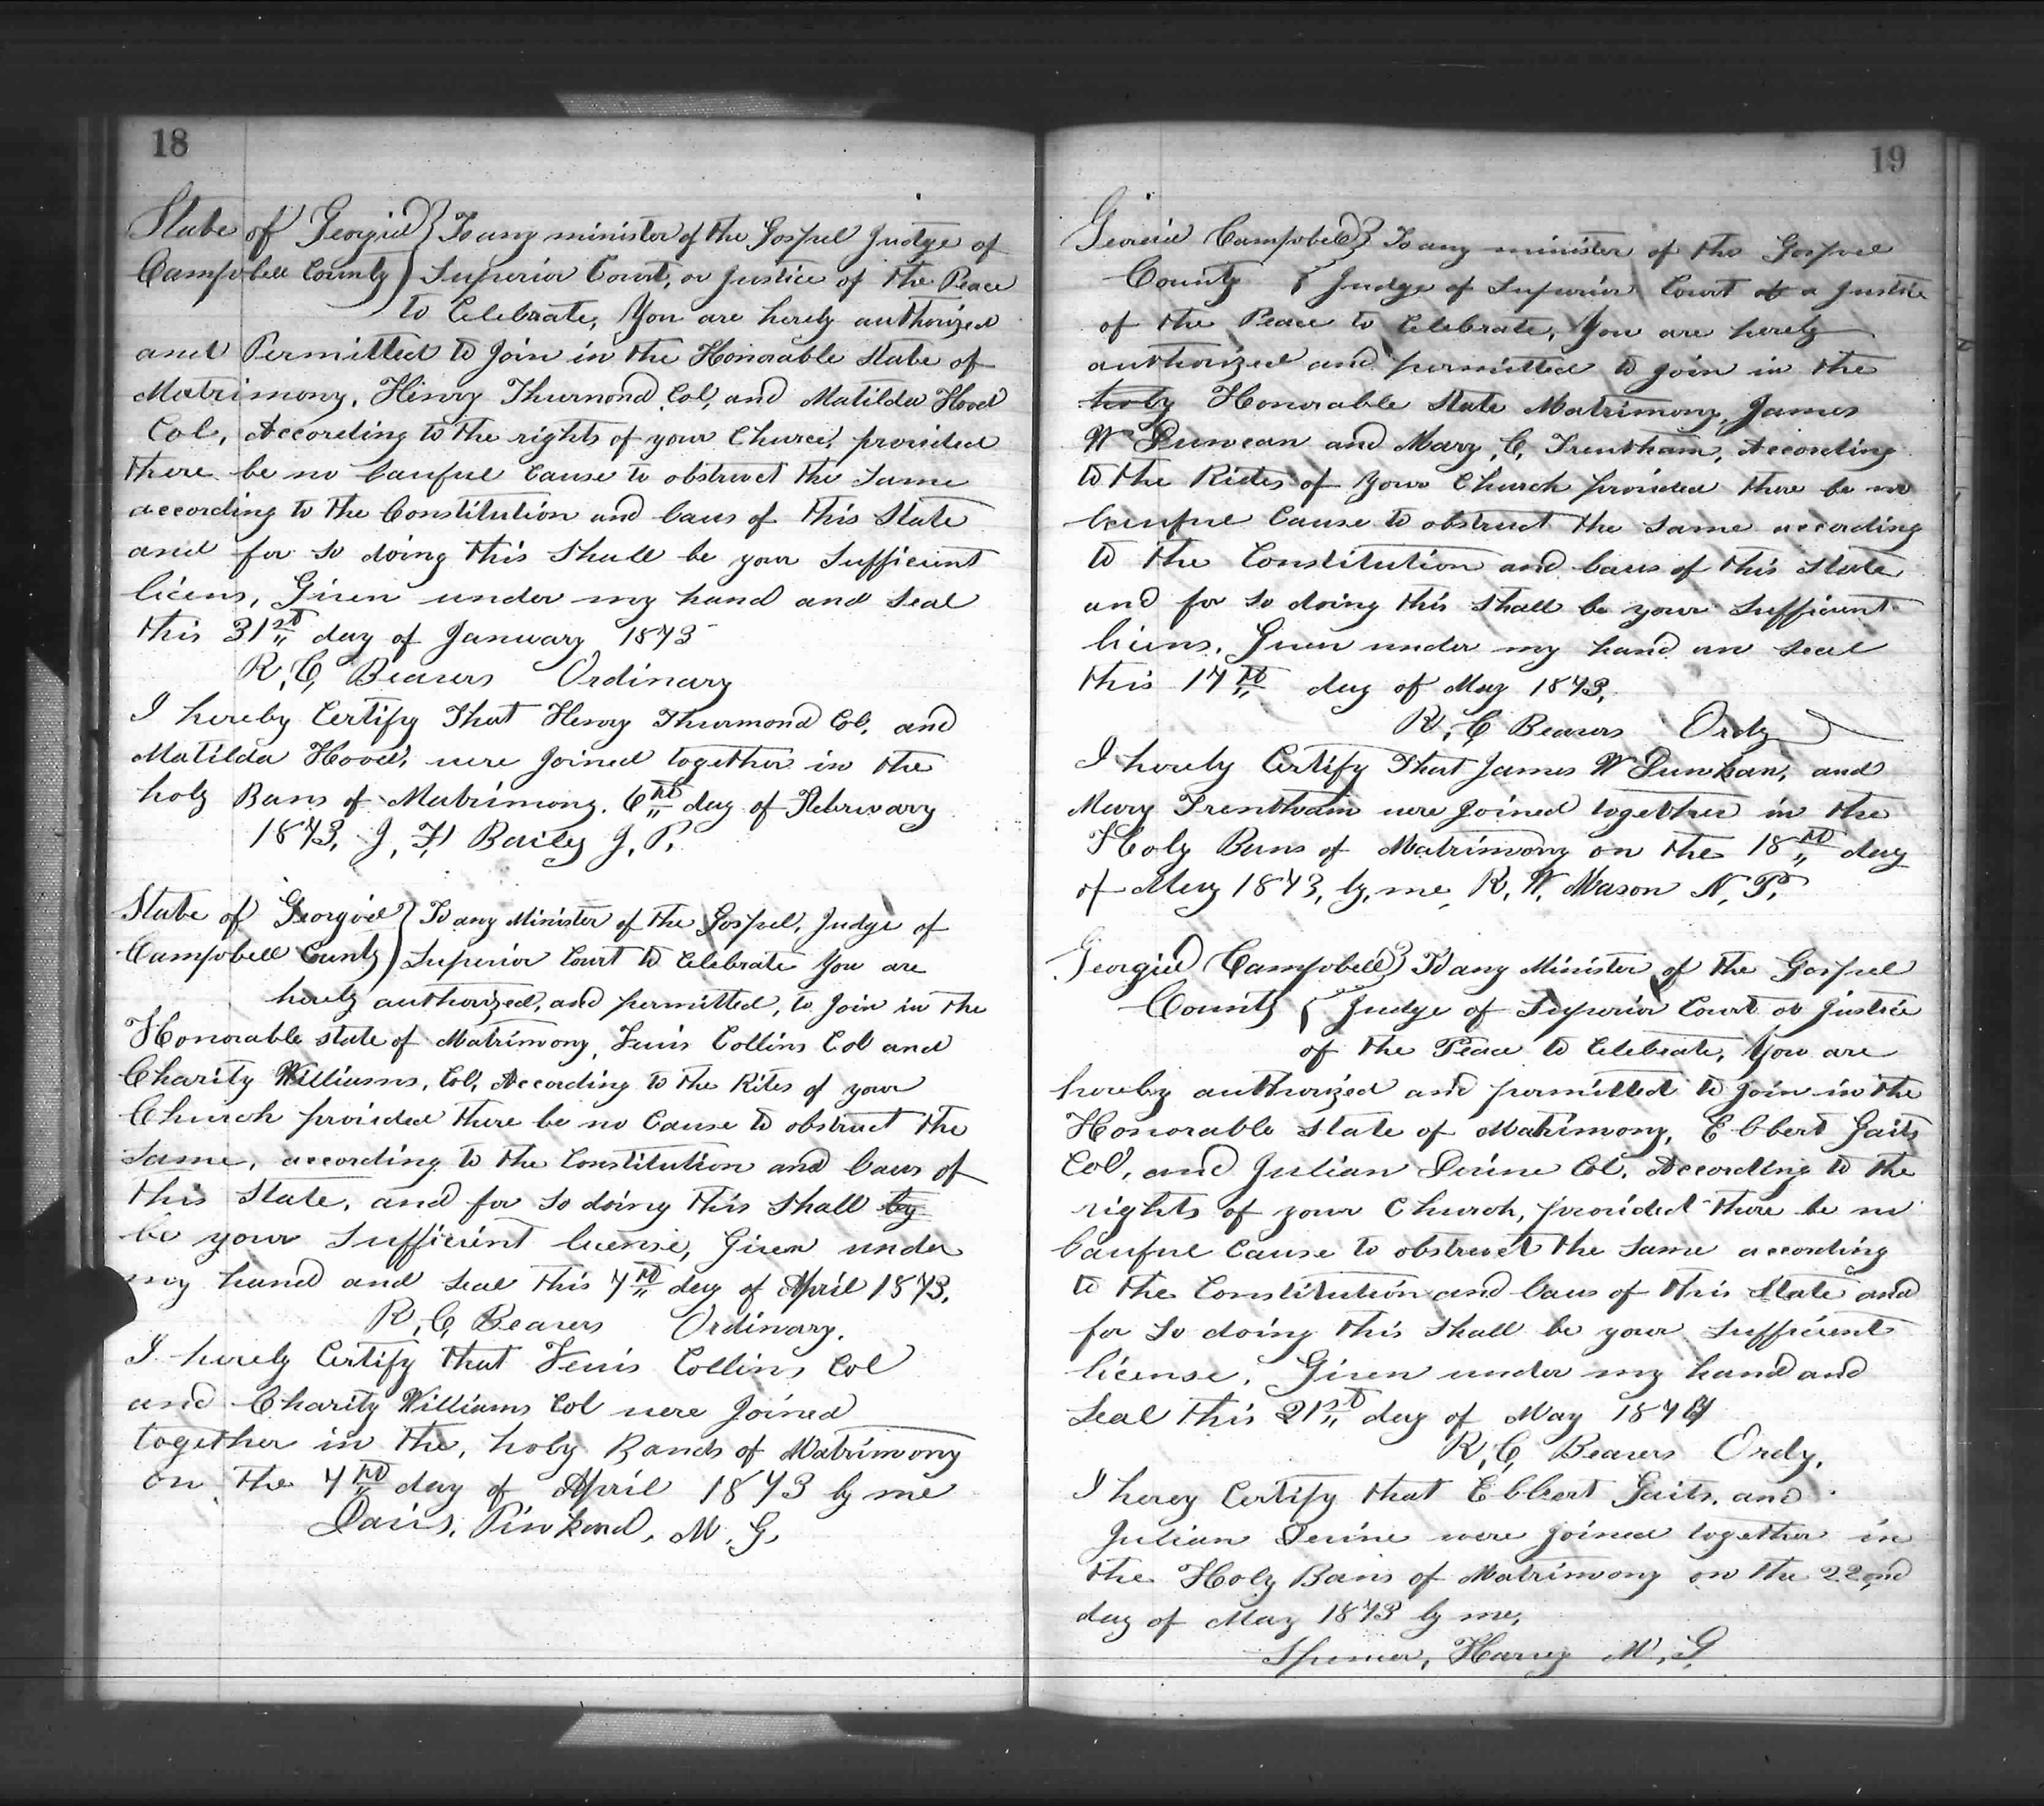 18
State of Georgia } To any minister of the Gospel Judge of
Campbell County } Superior Court, or Justice of the Peace
to Celebrate, You are herely authorized
and Permitted to Join in the Honorable State of
Matrimony, Henry Thurmond Col, and Matilda Hood
Col, According to the rights of your Church, provided
there be no lauful Cause to obstruct the Same
according to the Constitution and laws of this State
and for so doing this shall be your Sufficient
licens, Given under my hand and seal
this 31st day of January 1873
R, C, Beavers Ordinary
I hereby Certify That Henry Thurmond Col, and
Matilda Hood, were Joined together in the
holy Bans of Matrimony. 6th day of February
1873, J, F, Baily J, P,
State of Georgia } To any Minister of the Gospel, Judge of
Campbell County } Superior Court to Celebrate You are
herely authorized, and permitted, to Join in the
Honorable state of Matrimony, Collins Col and
Charity Williams, Col, According to the Rites of your
Church provided there be no Cause to obstruct the
Same, according to the Constitution and laws of
this State, and for so doing this shall by
be your Sufficient license, Given under
my hand and seal this 7th day of April 1873,
R, C, Beavers Ordinary.
I herely Certify that Collins Col
and Charity Williams Col were Joined
together in the, holy Bands of Matrimony
on the 7th day of April 1873 by me
Davis, Pinkard, M, G,
19
Georgia Campbell } To any minister of the Gospel
County { Judge of Superior Court or a Justice
of the Peace to Celebrate, You are herely
authorized and permitted to Join in the
holy Honorable State Matrimony, James
W Duncan and Mary, C, Trentham, According
to the Rites of Your Church provided there be no
lauful Cause to obstruct the same according
to the Constitution and laws of this State
and for so doing this shall be your Sufficient
licens, Given under my hand an seal
this 17th day of May 1873,
R, C Beavers Ordy
I herely Certify That James W Dunkan, and
Mary Trentham were Joined together in the
Holy Bans of Matrimony on the 18th day
of May 1873, by, me, R, W, Mason N, P,
Georgia Campbell } To any Minister of the Gospel
County { Judge of Superior Court or Justice
of the Peace to Celebrate, You are
hereby authorized and permitted to Join in the
Honorable State of Matrimony, Ebbert Gaits
Col, and Julian Col, According to the
rights of your Church, provided there be no
lauful Cause to obstruct the same according
to the Constitution and laws of this State and
for so doing this shall be your Sufficient
license, Given under my hand and
Seal this 21st day of May 187
R, C, Beavers Ordy,
I herey Certify that Ebbert Gaits, and
Julian were Joined together in
the Holy Bans of Matrimony on the 22nd
day of May 1873 by me,
Spencer, Harvey M, G,